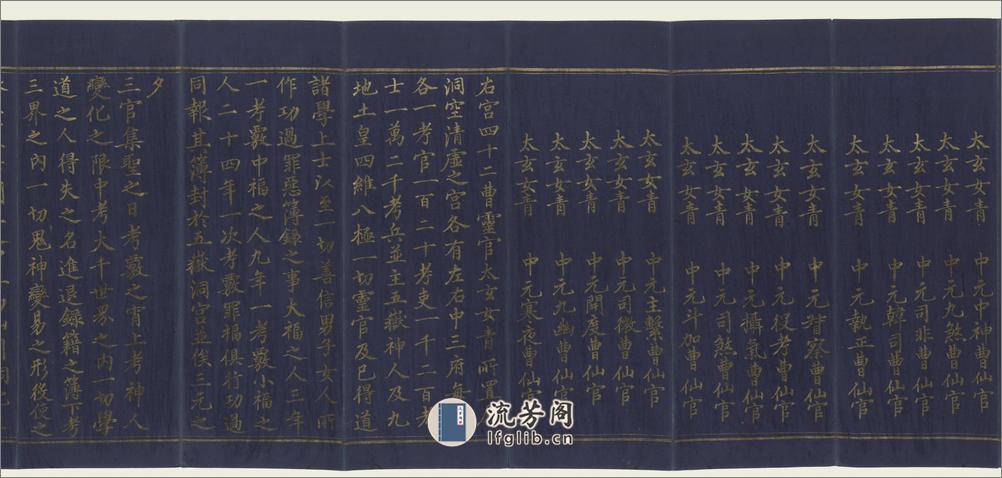 太玄女青 中元中神曹仙官
太玄女青 中元九煞曹仙官
太玄女青 中元司非曹仙官
太玄女青 中元韓司曹仙官
太玄女青 中元執正曹仙官
太玄女青 中元督察曹仙官
太玄女青 中元役考曹仙官
太玄女青 中元攝氣曹仙官
太玄女青 中元司煞曹仙官
太玄女青 中元斗加曹仙官
太玄女青 中元主繫曹仙官
太玄女青 中元司徼曹仙官
太玄女青 中元開度曹仙官
太玄女青 中元九幽曹仙官
太玄女青 中元寒夜曹仙官
右宮四十二曹靈官太玄女青所置
洞空清虛之宮各有左右中三府每
各一考官一百二十考吏一千二百考
士一萬二千考兵並主五嶽神人及九
地土皇四維八極一切靈官及已得道
諸學上士以至一切善信男子女人所
作功過罪惡簿錄之事大福之人三年
一考覈中福之人九年一考覈小福之
人二十四年一次考覈罪福俱行功過
同報其簿封於五嶽洞宮並俟三元之
夕
三官集聖之日考覈之宵上考神人
變化之限中考大千世界之內一切學
道之人得失之名進退錄籍之簿下考
三界之內一切鬼神變易之形役使之
流芳阁
lfglib.cn